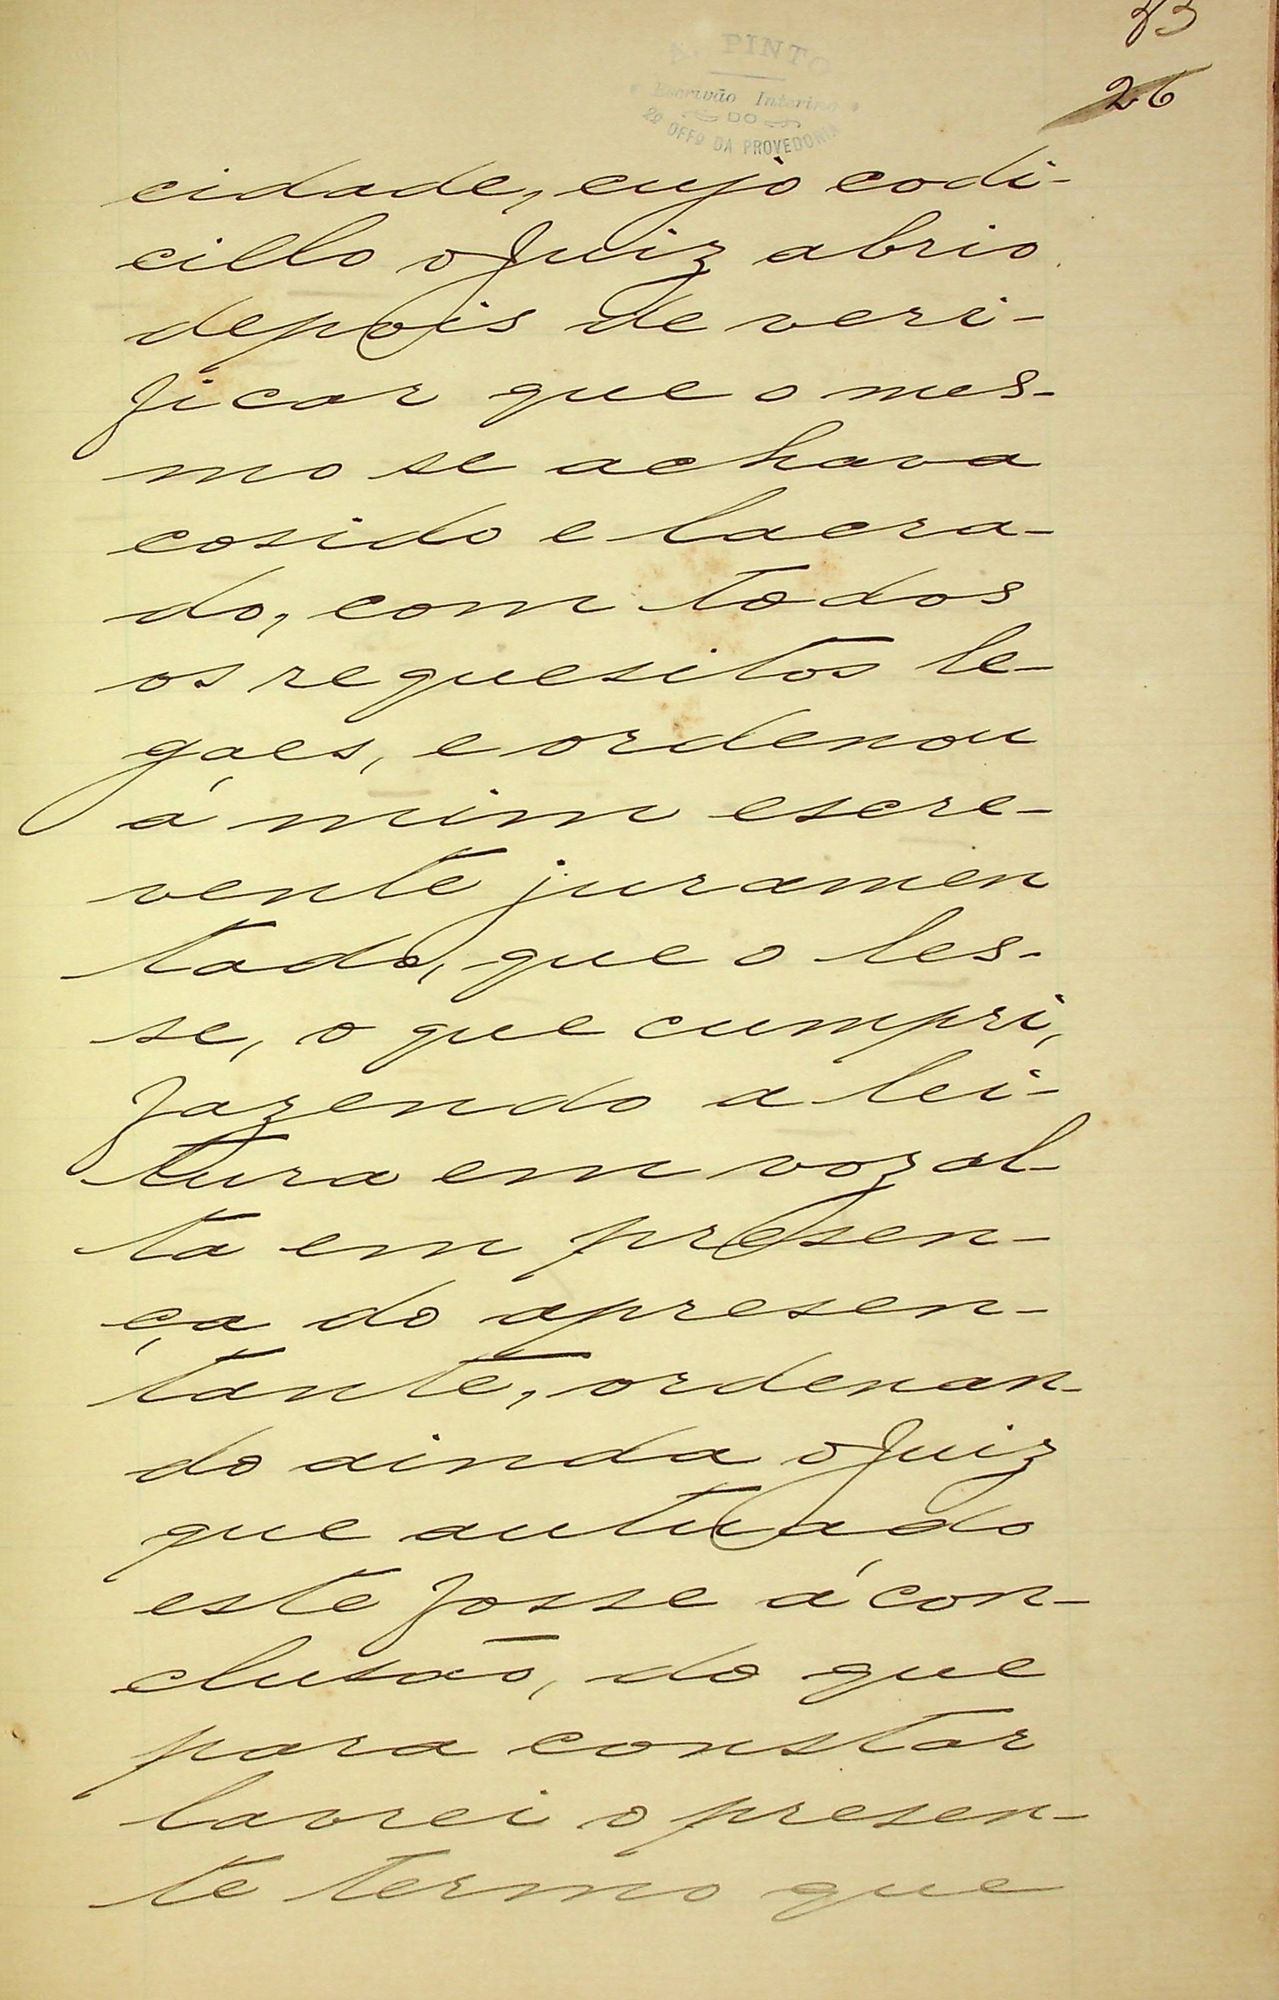 33
26
A. PINTO
Escrivão Interino
DO
2º OFFº DA PROVEDORIA
cidade, cujo codi-
cillo o Juiz abrio
depois de veri-
ficar que o mes-
mo se achava
cosido e lacra-
do, com todos
os requesitos le-
gaes, e ordenou
á mim escre-
vente juramen
tado, que o les-
se, o que cumpri,
fazendo a lei-
tura em voz al-
ta em presen-
ça do apresen-
tante, ordenan-
do ainda o Juiz
que autuado
este fosse á con-
clusão, do que
para constar
lavrei o presen-
te termo que